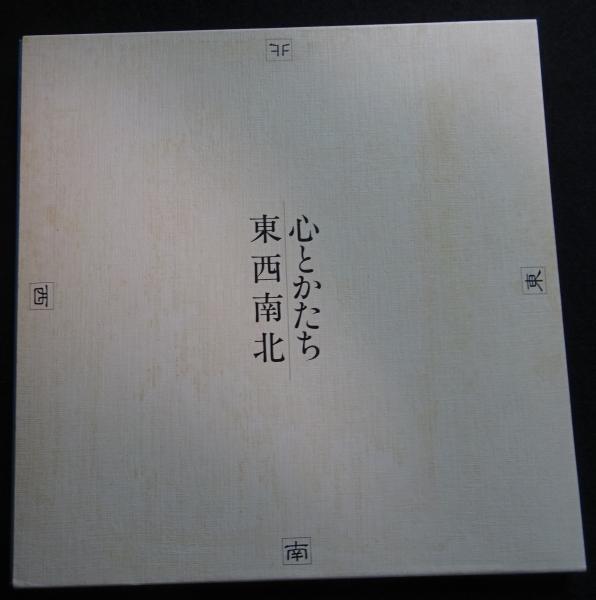 北
心とかたち
東西南北
西
東
南